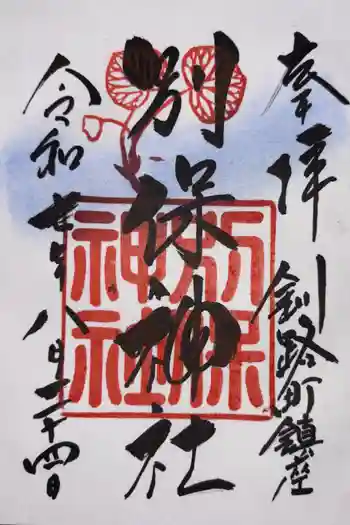 奉拝
釧路町鎮座
別保神社
別保
神社
令和
年八月二十四日